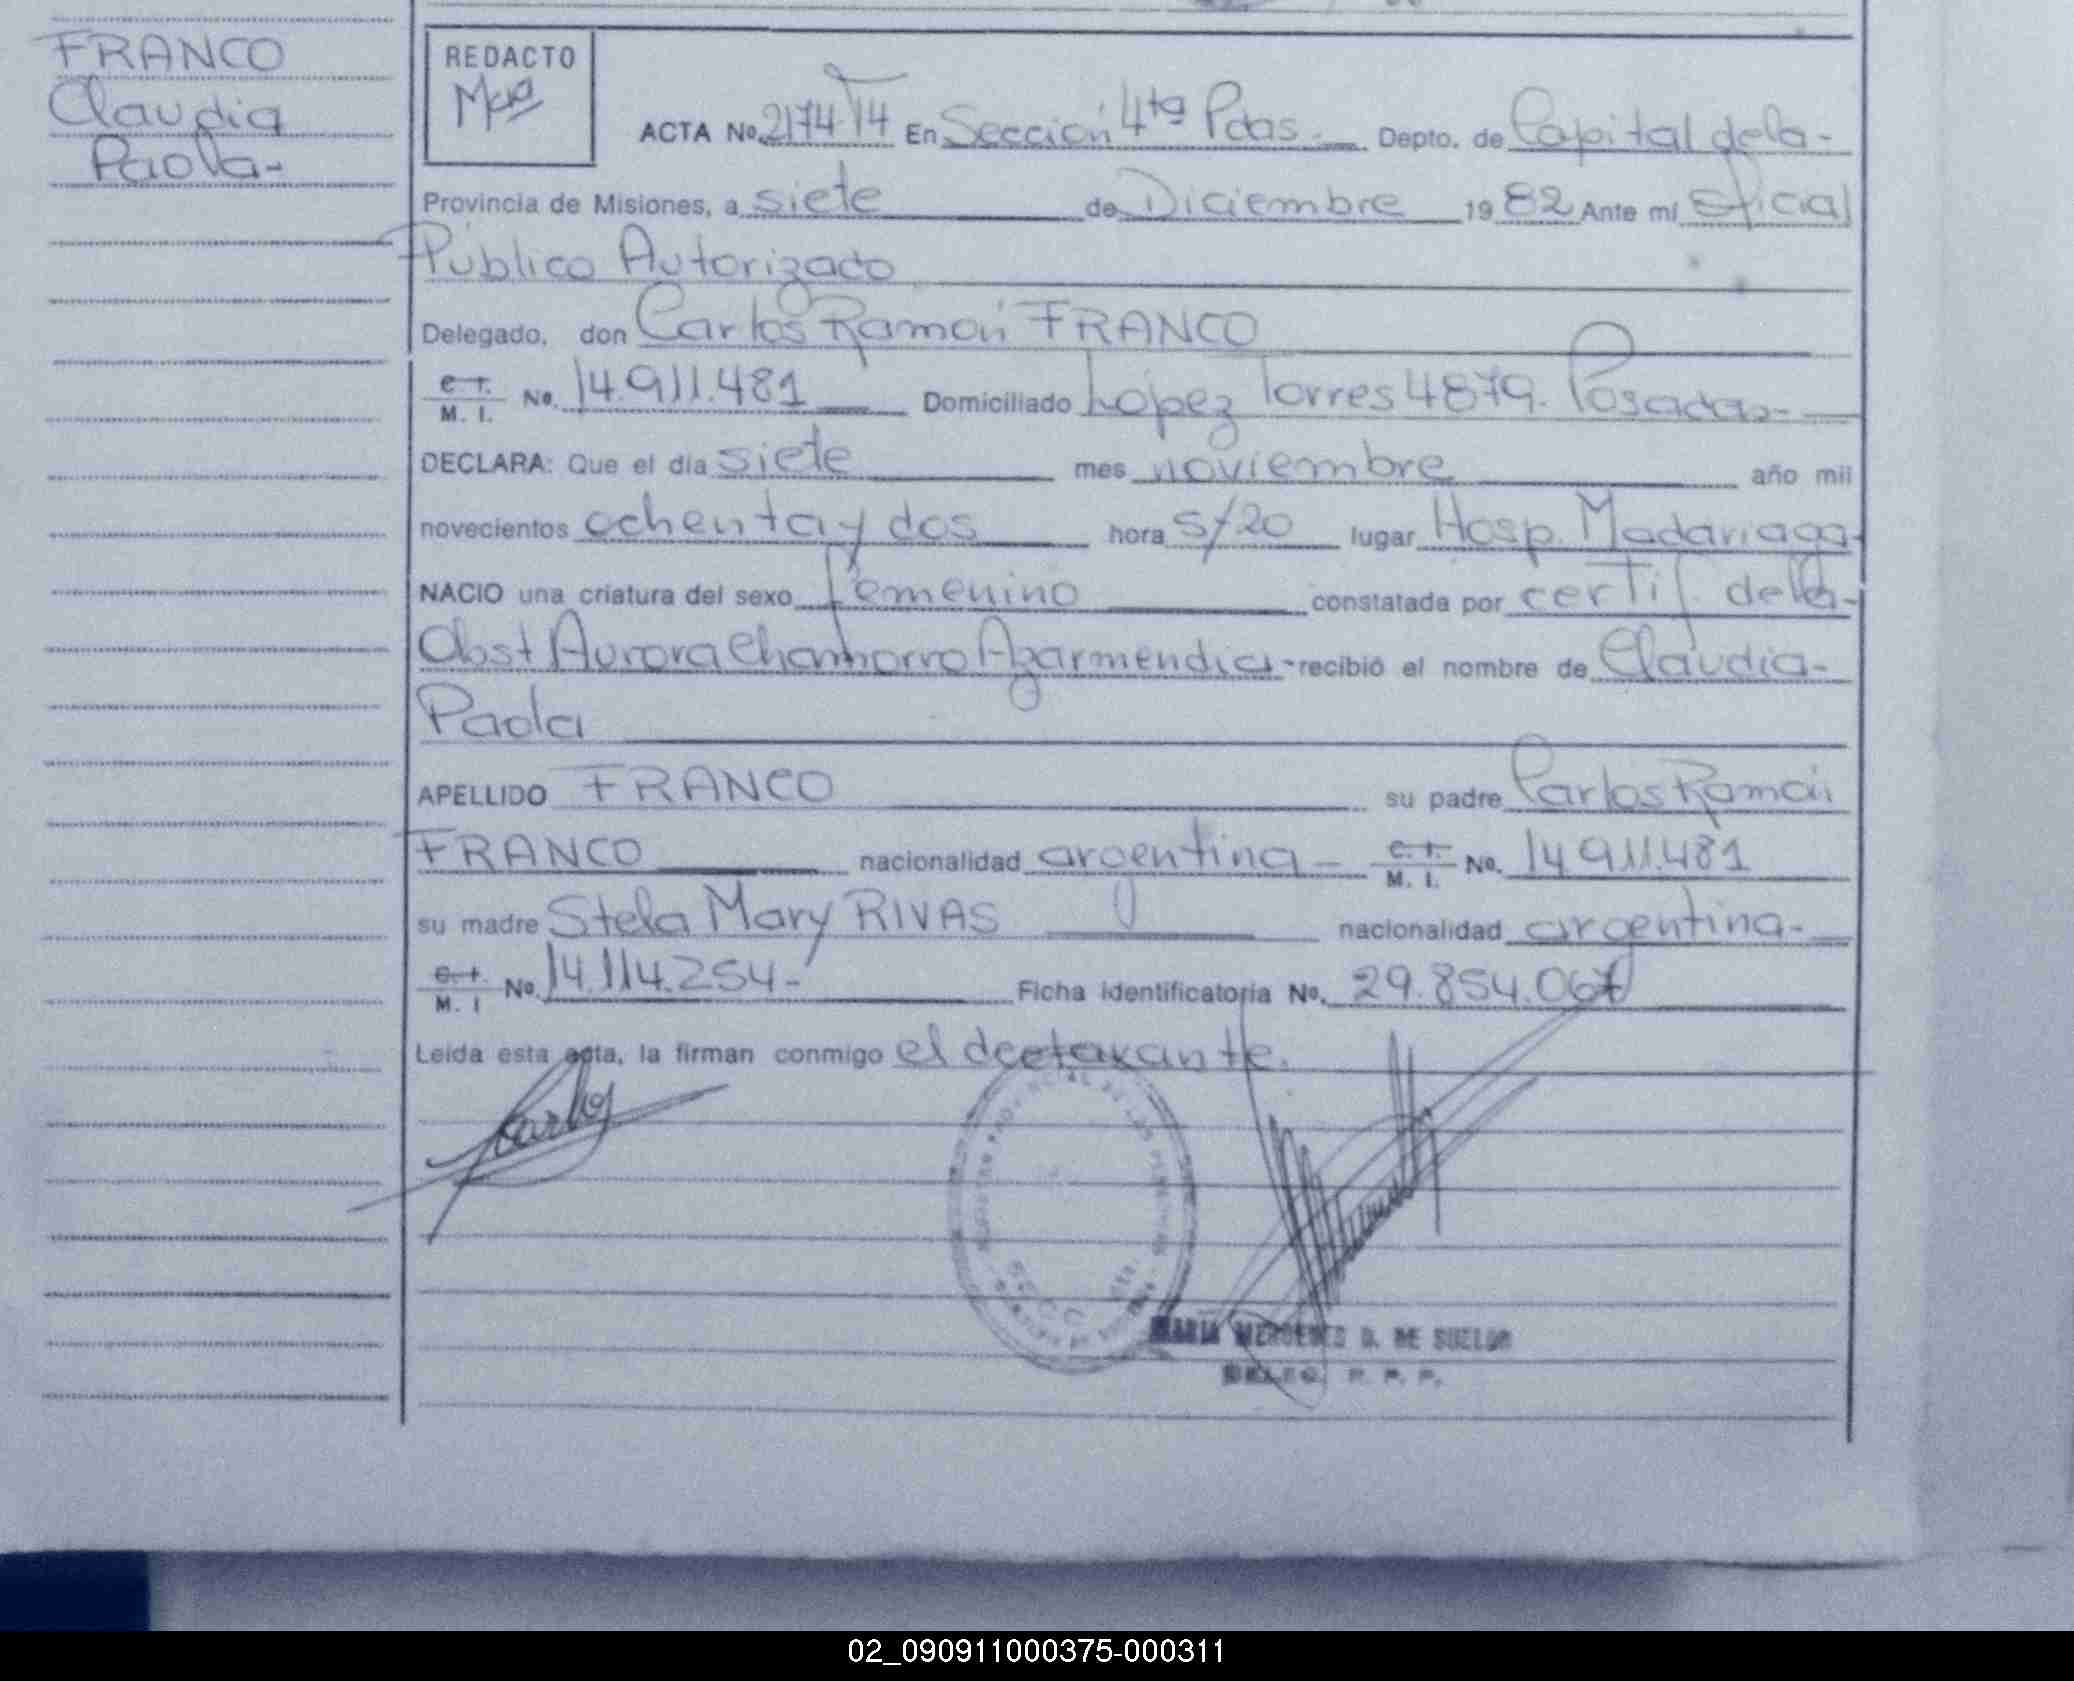 FRANCO
Claudia
Paola-
REDACTO
ACTA No. 2174 T4 En Sección 4ta Pdas. Depto. de Capital de la-
Provincia de Misiones, a siete de Diciembre 1982 Ante mí oficial
Público Autorizado
Delegado, don Carlos Ramón FRANCO
C.I. M. I. No. 14.911.481 Domiciliado López Torres 4879. Posadas-
DECLARA: Que el día siete mes noviembre año mil
novecientos ochenta y dos hora 5/20 lugar Hosp. Madariaga-
NACIO una criatura del sexo femenino constatada por certif. de la-
Obst Aurora Chamorro Agarmendia- recibió el nombre de Claudia-
Paola
APELLIDO FRANCO su padre Carlos Ramón
FRANCO nacionalidad argentina- C.I. M. I. No. 14.911.481
su madre Stela Mary RIVAS nacionalidad argentina-
C.I. M. I No. 14.114.254- Ficha identificatoria No. 29.854.067
Leída esta acta, la firman conmigo el declarante.
Carlos
MARIA MERCEDES D. DE
02_090911000375-000311